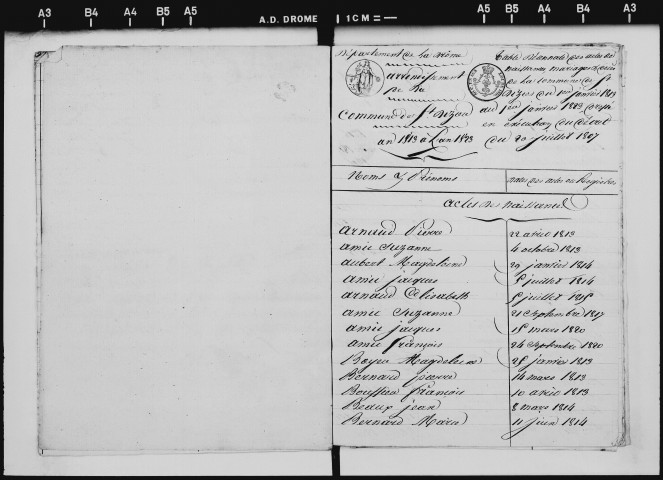 A3 B4 A4 B5 A5 A.D. DROME 1CM A5 B5 A4 B4 A3
Département de la Drôme
arrondissement
de Die
Commune de St
an 1813 à l'an 1823
Table décennale des actes de
naissances mariages & décès
de la commune de St
du 1er janvier 1813
au 1er janvier 1823
en exécution du décret
du 20 juillet 1807
Noms & Prénoms
dates des actes ou Registres
actes de naissances
arnaud Pierre 22 avril 1813
amic Suzanne 4 octobre 1813
aubert Magdeleine 29 janvier 1814
amic jacques 8 juillet 1814
arnaud Elisabeth juillet 1815
amic Suzanne 21 Septembre 1817
amic jacques 18 mars 1820
amic françois 24 Septembre 1820
Magdeleine 28 janvier 1813
Bernard pierre 14 mars 1813
Bouffier françois 10 avril 1813
Beaux jean 8 mars 1814
Bernard Marie 11 juin 1814